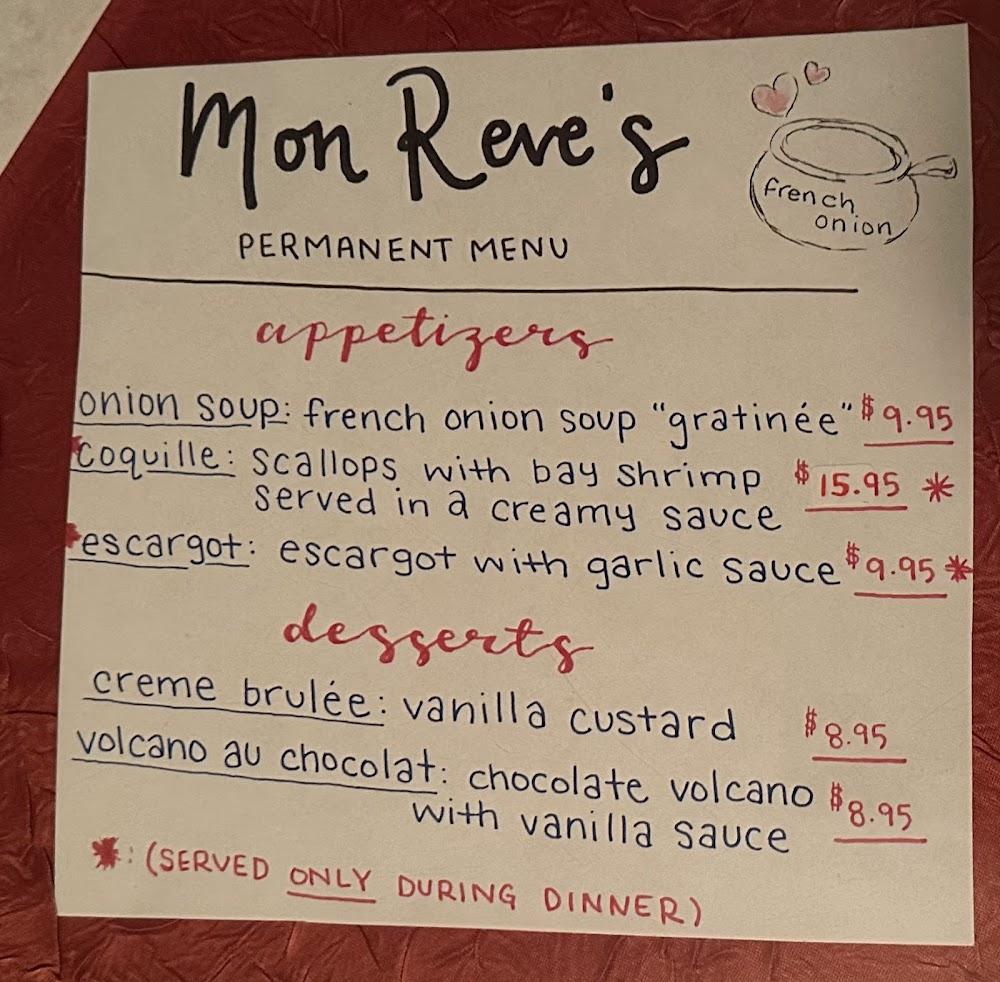 Mon Reve's
french
onion
PERMANENT MENU
appetizers
onion soup: french onion soup "gratinée" $9.95
*coquille: scallops with bay shrimp $15.95 *
served in a creamy sauce
*escargot: escargot with garlic sauce $9.95 *
desserts
creme brulée: vanilla custard $8.95
volcano au chocolat: chocolate volcano $8.95
with vanilla sauce
*: (SERVED ONLY DURING DINNER)